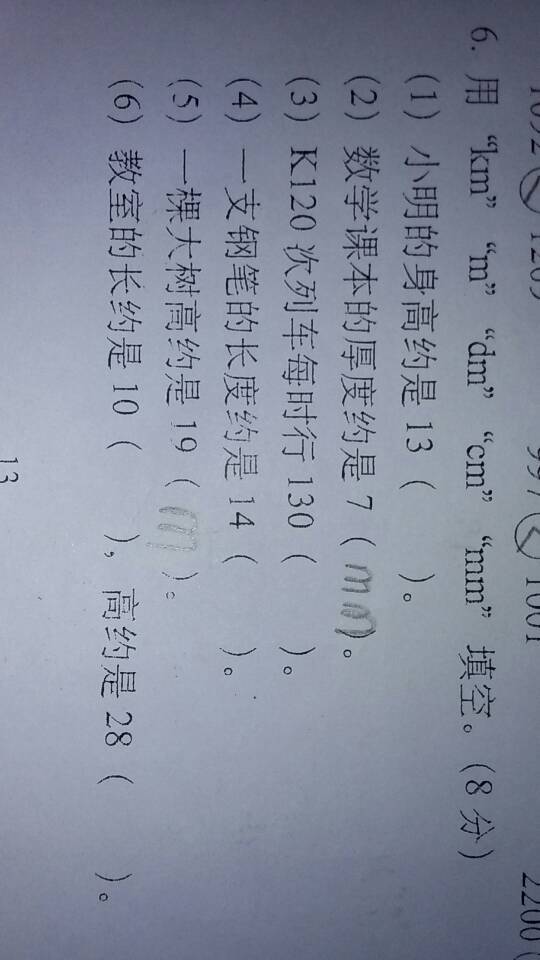 6. 用 “km” “m” “dm” “cm” “mm” 填空。(8 分)
(1) 小明的身高约是 13 (　　)。
(2) 数学课本的厚度约是 7 ( mm )。
(3) K120 次列车每时行 130 (　　)。
(4) 一支钢笔的长度约是 14 (　　)。
(5) 一棵大树高约是 19 ( m )。
(6) 教室的长约是 10 (　　), 高约是 28 (　　)。
13